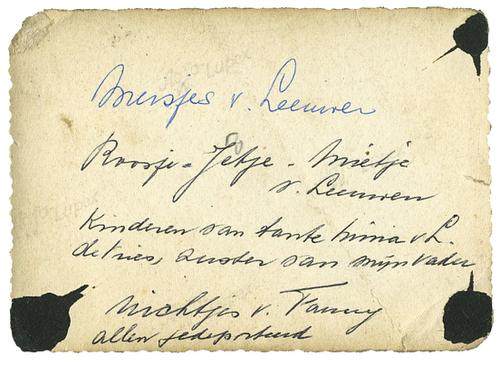 Meisjes v. Leeuwen
Roosje - Jetje - Mietje
v. Leeuwen
Kinderen van tante Mina v L.
de Vries, zuster van mijn vader
Nichtjes v. Fanny
allen gedeporteerd